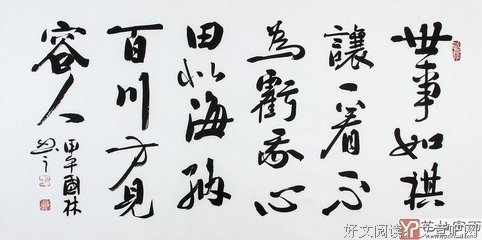 世事如棋
讓一着不
為虧我心
田似海納
百川方見
容人
甲午國林
好文阅读